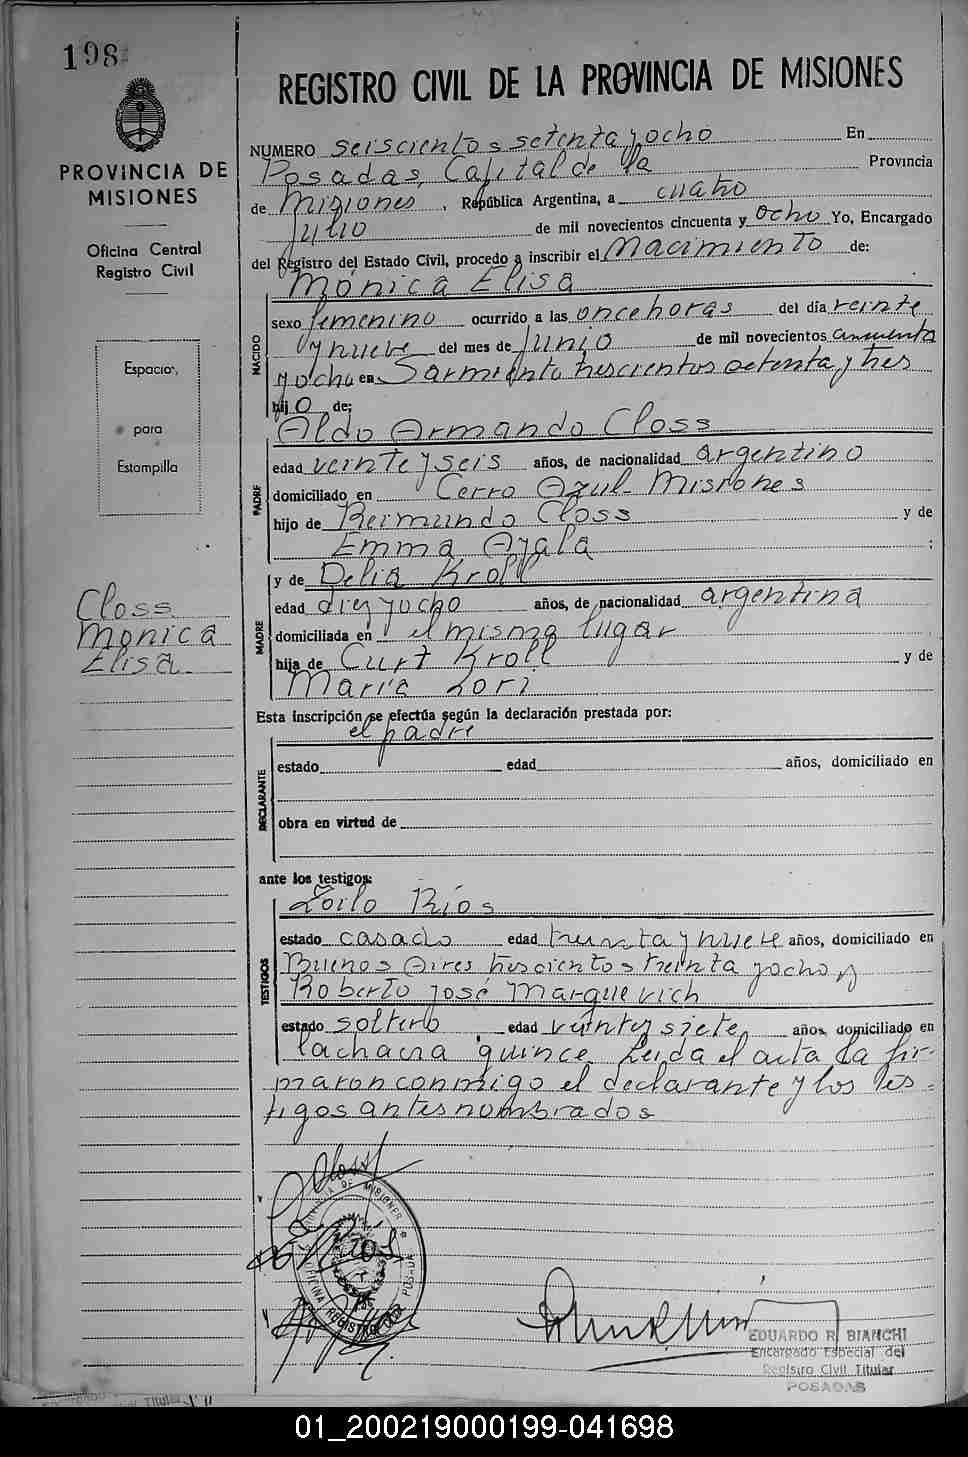 198
PROVINCIA DE
MISIONES
Oficina Central
Registro Civil
Espacio
para
Estampilla
Closs
Monica
Elisa
REGISTRO CIVIL DE LA PROVINCIA DE MISIONES
NUMERO seiscientos setenta y ocho En
Posadas, Capital de la Provincia
de Misiones, República Argentina, a cuatro
Julio de mil novecientos cincuenta y ocho Yo, Encargado
del Registro del Estado Civil, procedo a inscribir el Nacimiento de:
NACIDO
Mónica Elisa
sexo femenino ocurrido a las once horas del día veinte
y nueve del mes de Junio de mil novecientos cincuenta
y ocho en Sarmiento trescientos setenta y tres
hijo de:
PADRE
Aldo Armando Closs
edad veinte y seis años, de nacionalidad argentino
domiciliado en Cerro Azul- Misiones
hijo de Reimundo Closs y de
Emma Ayala ;
MADRE
y de Delia Kroll
edad diez y ocho años, de nacionalidad argentina
domiciliada en el mismo lugar
hija de Curt Kroll y de
María Lori
Esta inscripción se efectúa según la declaración prestada por:
el padre
DECLARANTE
estado edad años, domiciliado en
obra en virtud de
ante los testigos:
TESTIGOS
Zoilo Ríos
estado casado edad treinta y nueve años, domiciliado en
Buenos Aires trescientos treinta y ocho y
Roberto José Marquevich
estado soltero edad veinte y siete años, domiciliado en
la chacra quince. Leida el acta la fir-
maron conmigo el declarante y los tes-
tigos antes nombrados
Closs
PROVINCIA DE MISIONES
OFICINA REGISTRO CIVIL POSADAS
EDUARDO R. BIANCHI
Encargado Especial del
Registro Civil Titular
POSADAS
01_200219000199-041698